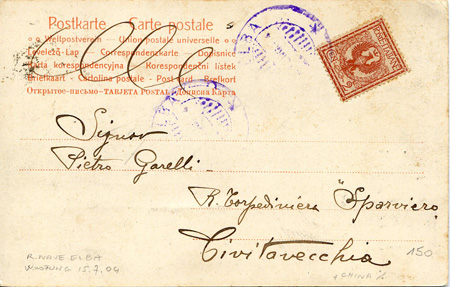 Postkarte — Carte postale
Weltpostverein — Union postale universelle
Levelező-Lap — Correspondenzkarte — Dopisnice
Karta korespondencyjna — Korespondenční lístek
Briefkaart — Cartolina postale — Post card — Brefkort
Открытое-письмо — TARJETA POSTAL — Дописна Карта
ELBA
Signor
Pietro Garelli
R. Torpediniera "Sparviero"
Civitavecchia
R. NAVE ELBA
WOOSUNG 15.7.04
150
CHINA